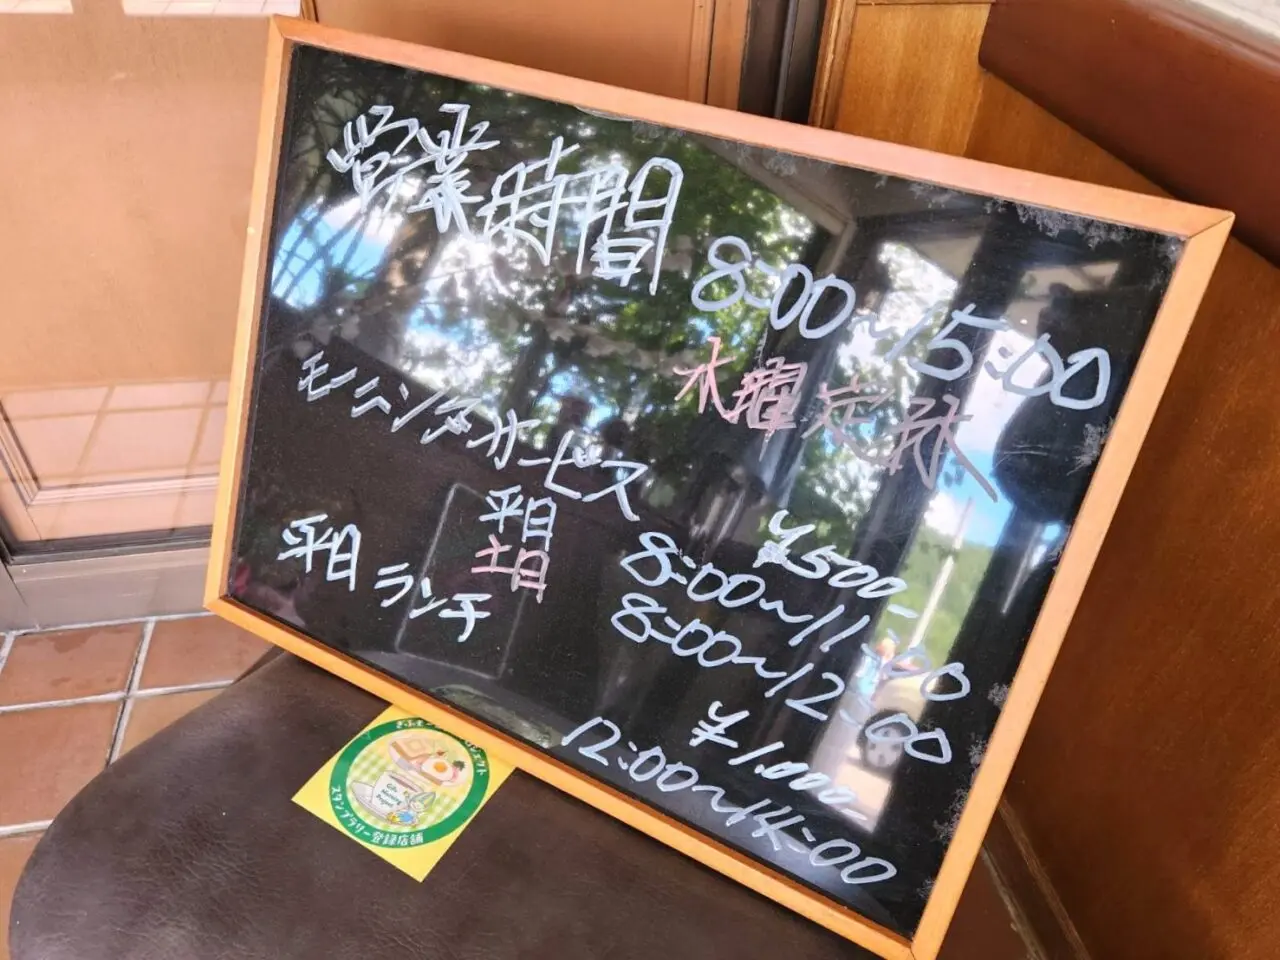 営業時間
8:00~15:00
水曜定休
モーニングサービス
¥500-
平日 8:00~11:00
土日 8:00~12:00
平日 ランチ
¥1.000-
12:00~14:00
Gifu
Morning
Project
スタンプラリー登録店舗